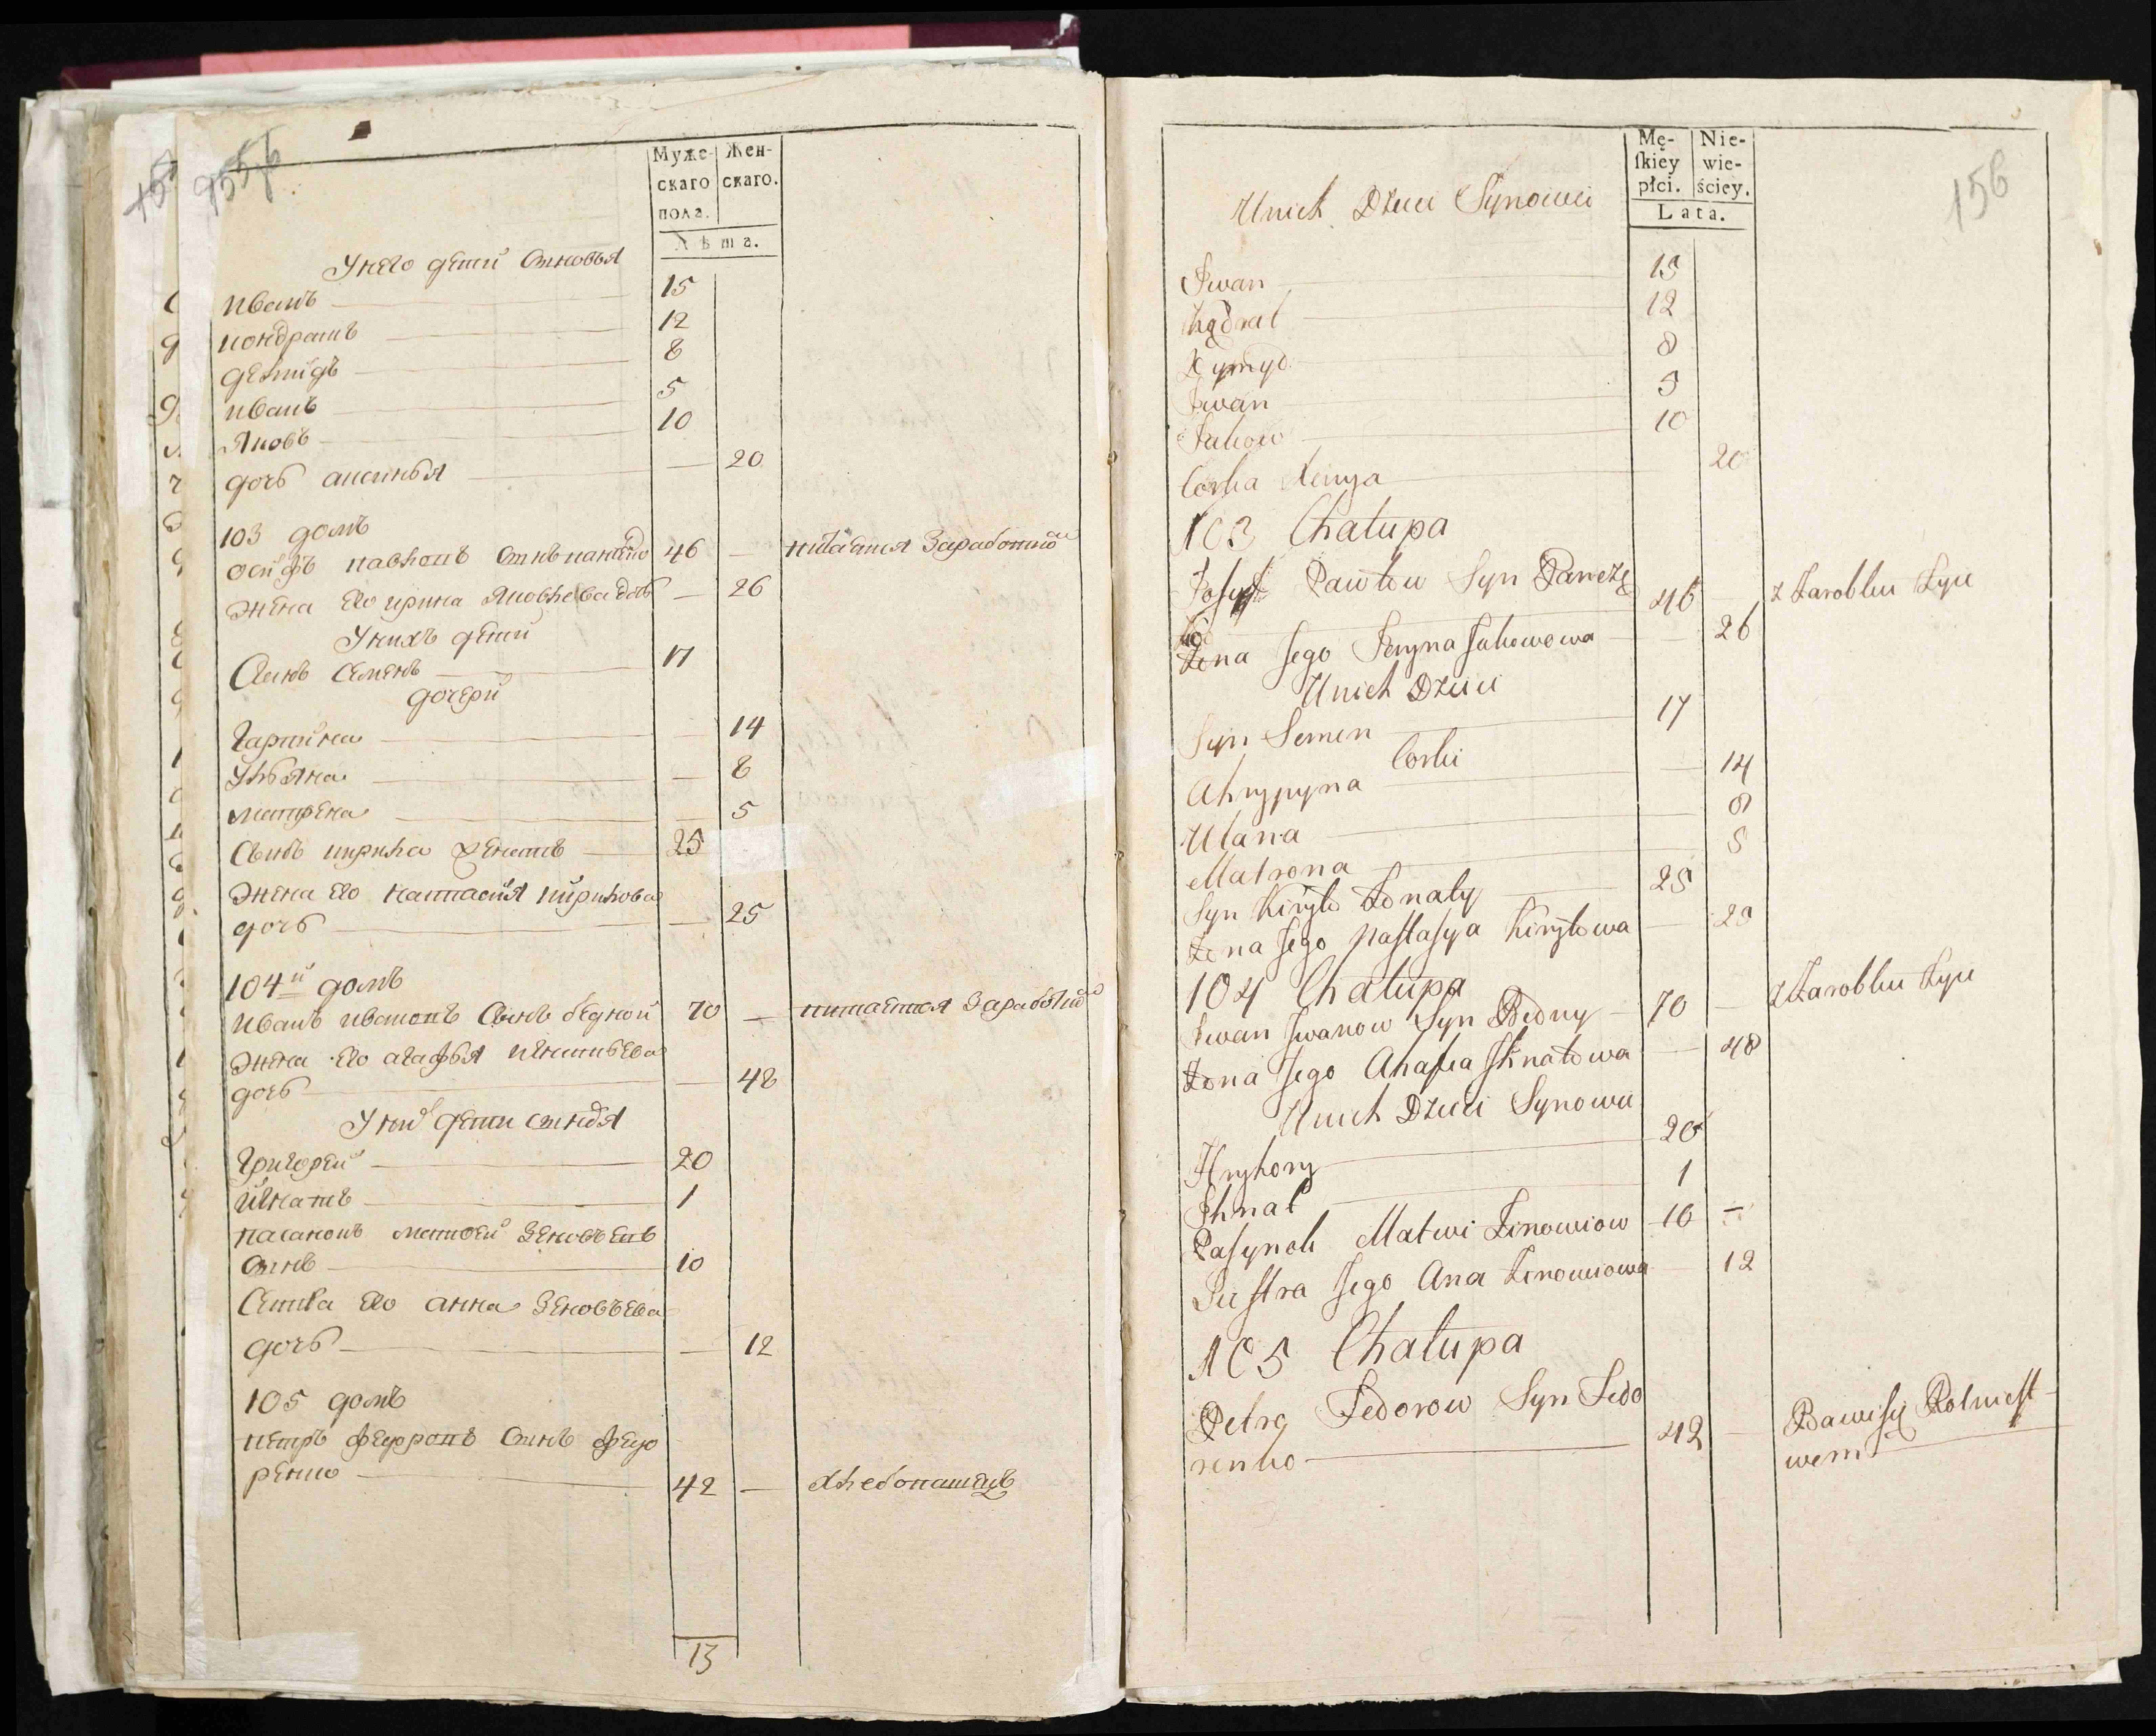 Муже-
скаго
пола.
Жен-
скаго.
Лѣта.
У него детй сыновья
Иванъ 15
кондратъ 12
демидъ 8
иванъ 5
Яковъ 10
дочь аксинья — 20
103 домъ
осипъ павловъ сынъ 46 — питается Заработкой
жена его ирина Яковлева дочь — 26
У нихъ детй
Сынъ Семенъ 17
дочери
14
Ульяна — 8
матрена — 5
Сынъ кирила 25
жена его настасия кирилова
дочь — 25
104й домъ
Иванъ ивановъ Сынъ бедной 70 — питается Заработкой
жена его агафья игнатьева
дочь — 48
У них дети сыновя
Григорей 20
игнатъ 1
пасынокъ матвей Зеновьевъ
Сынъ 10
Сестра его анна Зеновьева
дочь — 12
105 домъ
петръ федоровъ Сынъ федо
ренко 42 — хлебопашецъ
13
Mę-
ſkiéy
płci.
Nie-
wie-
ściey.
Lata.
156
Unich Dzieci Synowie
Iwan 15
Kądrat 12
Dymyd 8
Iwan 5
Jakow 10
Corka Xenya 20
103 Chałupa
Josyf Pawłow Syn 46 — z Zarobku Żyie
Żona Jego Iryna Jakowowa — 26
Unich Dzieci
Syn Semen 17
Corki
Ahrypyna — 14
Ulana 8
Matrona 5
Syn Kiryło Żonaty 25
Żona Jego Nastasya Kiryłowa — 25
104 Chałupa
Iwan Iwanow Syn Bedny 70 — z Zarobku Żyie
Żona Jego Ahafia Ihnatowa — 48
Unich Dzieci Synowie
Hryhory 20
Ihnat 1
Pasynok Matwi Zinowiow 10 —
Siestra Jego Ana Zinowiowa 12
105 Chałupa
Petro Fedorow Syn Fedo
renko 42 — Bawi się Rolniest-
wem